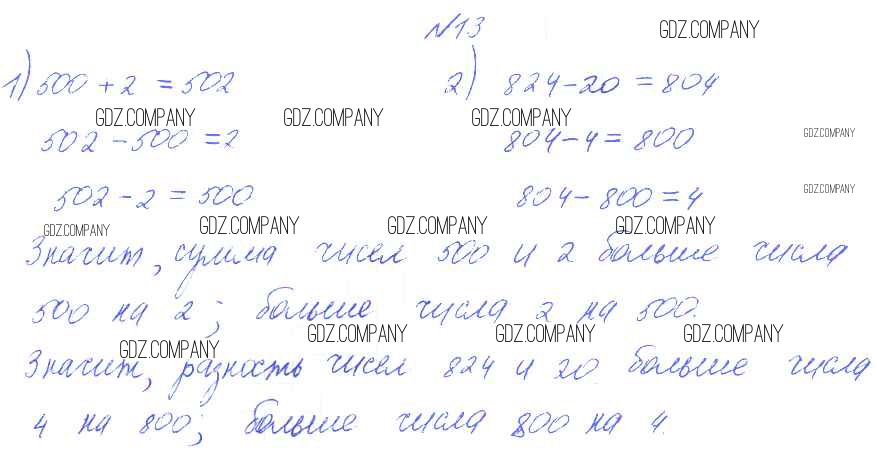 №13 GDZ.COMPANY
1) 500 + 2 = 502 2) 824 - 20 = 804
GDZ.COMPANY GDZ.COMPANY GDZ.COMPANY
502 - 500 = 2 804 - 4 = 800 GDZ.COMPANY
502 - 2 = 500 804 - 800 = 4 GDZ.COMPANY
GDZ.COMPANY GDZ.COMPANY GDZ.COMPANY GDZ.COMPANY
Значит, сумма чисел 500 и 2 больше числа
500 на 2; больше числа 2 на 500.
GDZ.COMPANY GDZ.COMPANY GDZ.COMPANY GDZ.COMPANY
Значит, разность чисел 824 и 20 больше числа
4 на 800; больше числа 800 на 4.